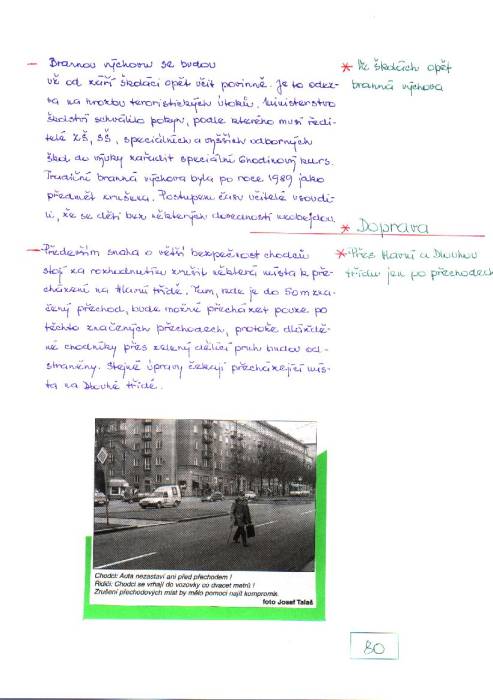 – Brannou výchovu se budou
už od září školáci opět učit povinně. Je to odez-
va na hrozbu teroristických útoků. Ministerstvo
školství schválilo pokyn, podle kterého musí ředi-
telé ZŠ, SŠ, speciálních a vyšších odborných
škol do výuky zařadit speciální 6hodinový kurs.
Tradiční branná výchova byla po roce 1989 jako
předmět zrušena. Postupem času učitelé usoudi-
li, že se děti bez některých dovedností neobejdou.
* Ve školách opět
branná výchova
* Doprava
– Především snaha o větší bezpečnost chodců
stojí za rozhodnutím zrušit některá místa k pře-
cházení na Hlavní třídě. Tam, kde je do 50m zna-
čený přechod, bude možné přecházet pouze po
těchto značených přechodech, protože dláždě-
né chodníky přes zelený dělící pruh budou od-
straněny. Stejné úpravy čekají přecházející mís-
ta na Dlouhé třídě.
* Přes Hlavní a Dlouhou
třídu jen po přechodech
Chodci: Auta nezastaví ani před přechodem !
Řidiči: Chodci se vrhají do vozovky co dvacet metrů !
Zrušení přechodových míst by mělo pomoci najít kompromis.
foto Josef Talaš
80